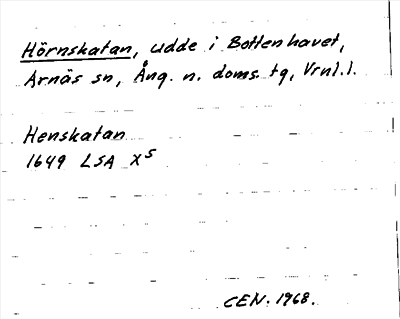 Hörnskatan, udde i Bottenhavet,
Arnäs sn, Ång. n. doms tg, Vrnl.l.
Henskatan
1649 LSA X⁵
CEN. 1968.